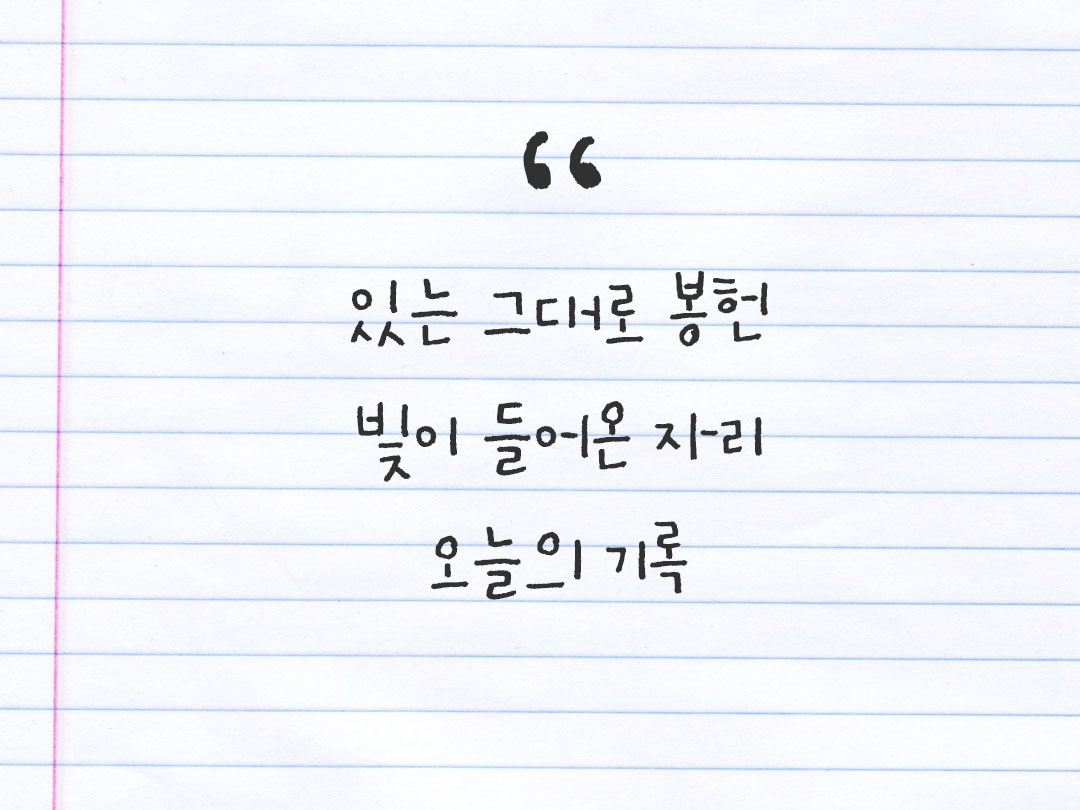 “
있는 그대로 봉헌
빛이 들어온 자리
오늘의 기록